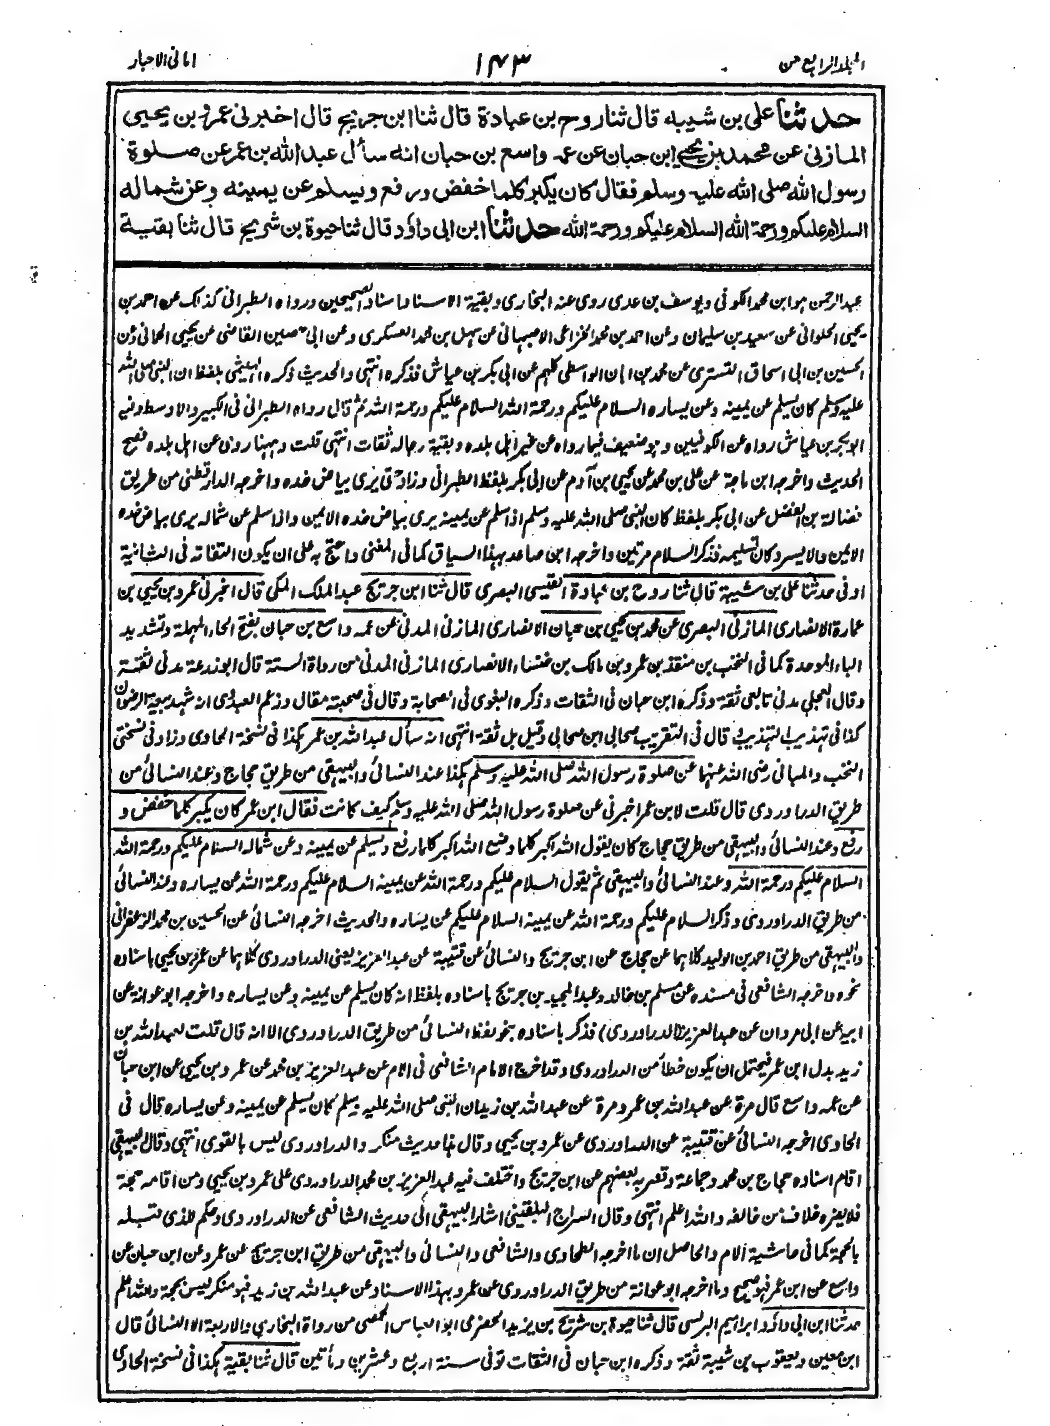 المجلد الرابع من
۱۴۳
امانی الاحبار
حدثنا علی بن شیبه قال ثنا روح بن عبادة قال ثنا ابن جریج قال اخبرنی عمرو بن یحیی
المازنی عن محمد بن یحیی ابن حبان عن عمه واسع بن حبان انه سأل عبد الله بن عمر عن صلوة
رسول الله صلی الله علیه وسلم فقال کان یکبر کلما خفض ورفع ویسلم عن یمینه وعن شماله
السلام علیکم ورحمة الله السلام علیکم ورحمة الله حدثنا ابن ابی داؤد قال ثنا حیوة بن شریح قال ثنا بقیة
عبد الرحمن هو ابن محمد الکوفی ویوسف بن عدی روی عنه البخاری وبقیة الاسناد اسناد الصحیحین ورواه الطبرانی کذلک عن احمد بن
یحیی الحلوانی عن سعید بن سلیمان وعن احمد بن محمد الخزاعی الاصبهانی عن سهل بن محمد العسکری وعن ابی حصین القاضی عن یحیی الحمانی وعن
الحسین بن ابی اسحاق التستری عن محمد بن ابان الواسطی کلهم عن ابی بکر بن عیاش فذکره انتهی والحدیث ذکره الهیثمی بلفظ ان النبی صلی الله
علیه وسلم کان یسلم عن یمینه وعن یساره السلام علیکم ورحمة الله السلام علیکم ورحمة الله ثم قال رواه الطبرانی فی الکبیر والاوسط وفیه
ابو بکر بن عیاش رواه عن الکوفیین وهو ضعیف فیما رواه عن غیر اهل بلده وبقیة رجاله ثقات انتهی قلت وههنا روی عن اهل بلده فصح
الحدیث واخرجه ابن ماجة عن علی بن محمد عن یحیی بن آدم عن ابی بکر بلفظ الطبرانی وزاد حتی یری بیاض خده واخرجه الدارقطنی من طریق
فضالة بن الفضل عن ابی بکر بلفظ کان النبی صلی الله علیه وسلم اذا سلم عن یمینه یری بیاض خده الایمن واذا سلم عن شماله یری بیاض خده
الایمن والایسر وکان تسلیمه فذکر السلام مرتین واخرجه ابن صاعد بهذا السیاق کما فی المغنی واحتج به علی ان یکون التفاته فی الثانیة
اوفی حدثنا علی بن شیبة قال ثنا روح بن عبادة القیسی البصری قال ثنا ابن جریج عبد الملک المکی قال اخبرنی عمرو بن یحیی بن
عمارة الانصاری المازنی البصری عن محمد بن یحیی بن حبان الانصاری المازنی المدنی عن عمه واسع بن حبان بفتح الحاء المهملة وتشدید
الباء الموحدة کما فی النخب بن منقذ بن عمرو بن مالک بن خنساء الانصاری المازنی المدنی من رواة الستة قال ابو زرعة مدنی ثقة
وقال العجلی مدنی تابعی ثقة وذکره ابن حبان فی الثقات وذکره البغوی فی الصحابة وقال فی صحبته مقال وزعم العبدری انه شهد بیعة الرضوان
کذا فی تهذیب التهذیب قال فی التقریب صحابی ابن صحابی وقیل بل ثقة انتهی انه سأل عبد الله بن عمر هکذا فی نسخة الحاوی وزاد فی نسختی
النخب والمبانی رضی الله عنهما عن صلوة رسول الله صلی الله علیه وسلم هکذا عند النسائی والبیهقی من طریق حجاج وعند النسائی من
طریق الدراوردی قال قلت لابن عمر اخبرنی عن صلوة رسول الله صلی الله علیه وسلم کیف کانت فقال ابن عمر کان یکبر کلما خفض و
رفع وعند النسائی والبیهقی من طریق حجاج کان یقول الله اکبر کلما وضع الله اکبر کلما رفع ویسلم عن یمینه وعن شماله السلام علیکم ورحمة الله
السلام علیکم ورحمة الله وعند النسائی والبیهقی ثم یقول السلام علیکم ورحمة الله عن یمینه السلام علیکم ورحمة الله عن یساره وعند النسائی
من طریق الدراوردی وذکر السلام علیکم ورحمة الله عن یمینه السلام علیکم عن یساره والحدیث اخرجه النسائی عن الحسین بن محمد الزعفرانی
والبیهقی من طریق احمد بن الولید کلاهما عن حجاج عن ابن جریج والنسائی عن قتیبة عن عبد العزیز یعنی الدراوردی کلاهما عن عمرو بن یحیی باسناده
نحوه واخرجه الشافعی فی مسنده عن مسلم بن خالد وعبد المجید بن جریج باسناده بلفظ انه کان یسلم عن یمینه وعن یساره واخرجه ابو عوانة عن
ابیه عن ابی مروان عن عبد العزیز (الدراوردی) فذکر باسناده بنحو لفظ النسائی من طریق الدراوردی الا انه قال قلت لعبد الله بن
زید بدل ابن عمر فیحتمل ان یکون خطأ من الدراوردی وقد اخرج الامام الشافعی فی الام عن عبد العزیز بن محمد عن عمرو بن یحیی عن ابن حبان
عن عمه واسع قال مرة عن عبد الله بن عمر ومرة عن عبد الله بن زید ان النبی صلی الله علیه وسلم کان یسلم عن یمینه وعن یساره قال فی
الحاوی اخرجه النسائی عن قتیبة عن الدراوردی عن عمرو بن یحیی وقال هذا حدیث منکر والدراوردی لیس بالقوی انتهی وقال البیهقی
اقام اسناده حجاج بن محمد وجماعة وقصر به بعضهم عن ابن جریج واختلف فیه عبد العزیز بن محمد الدراوردی علی عمرو بن یحیی ومن اقامه حجة
فلا یضره خلاف من خالفه والله اعلم انتهی وقال السراج البلقینی اشار البیهقی الی حدیث الشافعی عن الدراوردی وحکم للذی قبله
بالحجة کما فی حاشیة الام والحاصل ان ما اخرجه الطحاوی والشافعی والنسائی والبیهقی من طریق ابن جریج عن عمرو عن ابن حبان عن
واسع عن ابن عمر فهو صحیح وما اخرجه ابو عوانة من طریق الدراوردی عن عمرو بهذا الاسناد عن عبد الله بن زید فهو منکر لیس بحجة والله اعلم
حدثنا ابن ابی داؤد ابراهیم البرلسی قال ثنا حیوة بن شریح بن یزید الحضرمی ابو العباس الحمصی من رواة البخاری والاربعة الا النسائی قال
ابن معین ویعقوب بن شیبة ثقة وذکره ابن حبان فی الثقات توفی سنة اربع وعشرین ومأتین قال ثنا بقیة هکذا فی نسخة الحاوی